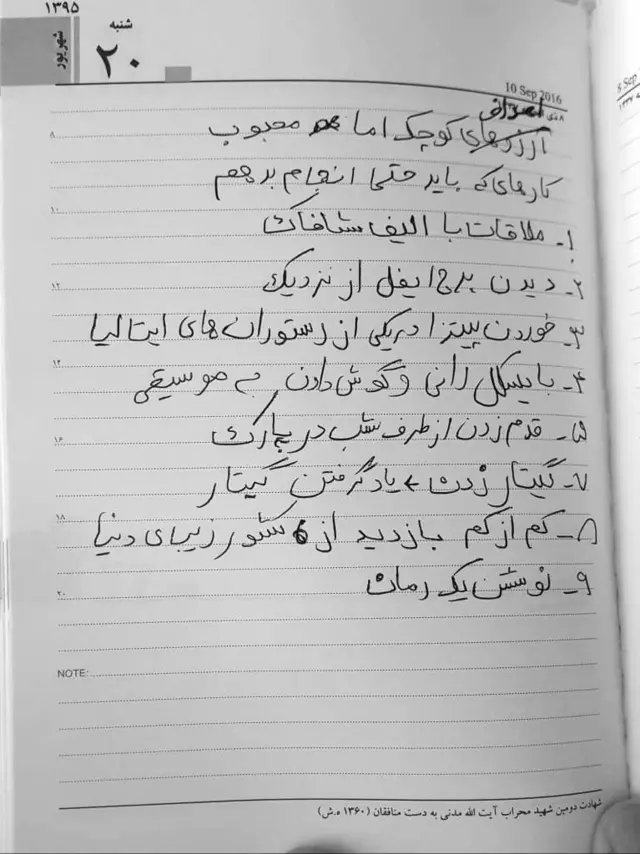 ۱۳۹۵
شنبه
شهریور
۲۰
10 Sep 2016
اهداف
آرزوهای کوچک اما محبوب
کارهای که باید حتی انجام بدهم
۱- ملاقات با الیف شافاک
۲- دیدن برج ایفل از نزدیک
۳- خوردن پیتزا در یکی از رستوران های ایتالیا
۴- بایسکل رانی و گوش دادن به موسیقی
۵- قدم زدن از طرف شب در پارک
۷- گیتار زدن ← یاد گرفتن گیتار
۸- کم از کم بازدید از 6 کشور زیبای دنیا
۹- نوشتن یک رمان
۸
۱۰
۱۲
۱۴
۱۶
۱۸
۲۰
NOTE:
شهادت دومین شهید محراب آیت الله مدنی به دست منافقان (۱۳۶۰ ه.ش)